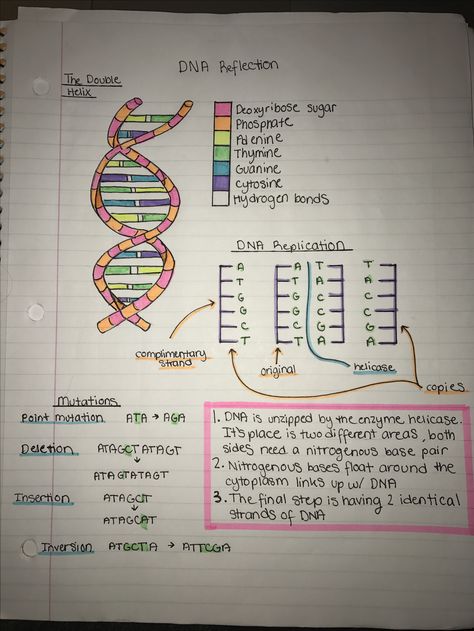 DNA Reflection
The Double
Helix
Deoxyribose sugar
Phosphate
Adenine
Thymine
Guanine
Cytosine
Hydrogen bonds
DNA Replication
A A T T
T T A A
G G C C
G G C C
C C G G
T T A A
complimentary
strand
original
helicase
copies
Mutations
Point mutation ATA → AGA
Deletion ATAGCTATAGT
↓
ATAGTATAGT
Insertion ATAGCT
↓
ATAGCAT
Inversion ATGCTA → ATTCGA
1. DNA is unzipped by the enzyme helicase.
It's place is two different areas, both
sides need a nitrogenous base pair
2. Nitrogenous bases float around the
cytoplasm links up w/ DNA
3. The final step is having 2 identical
strands of DNA